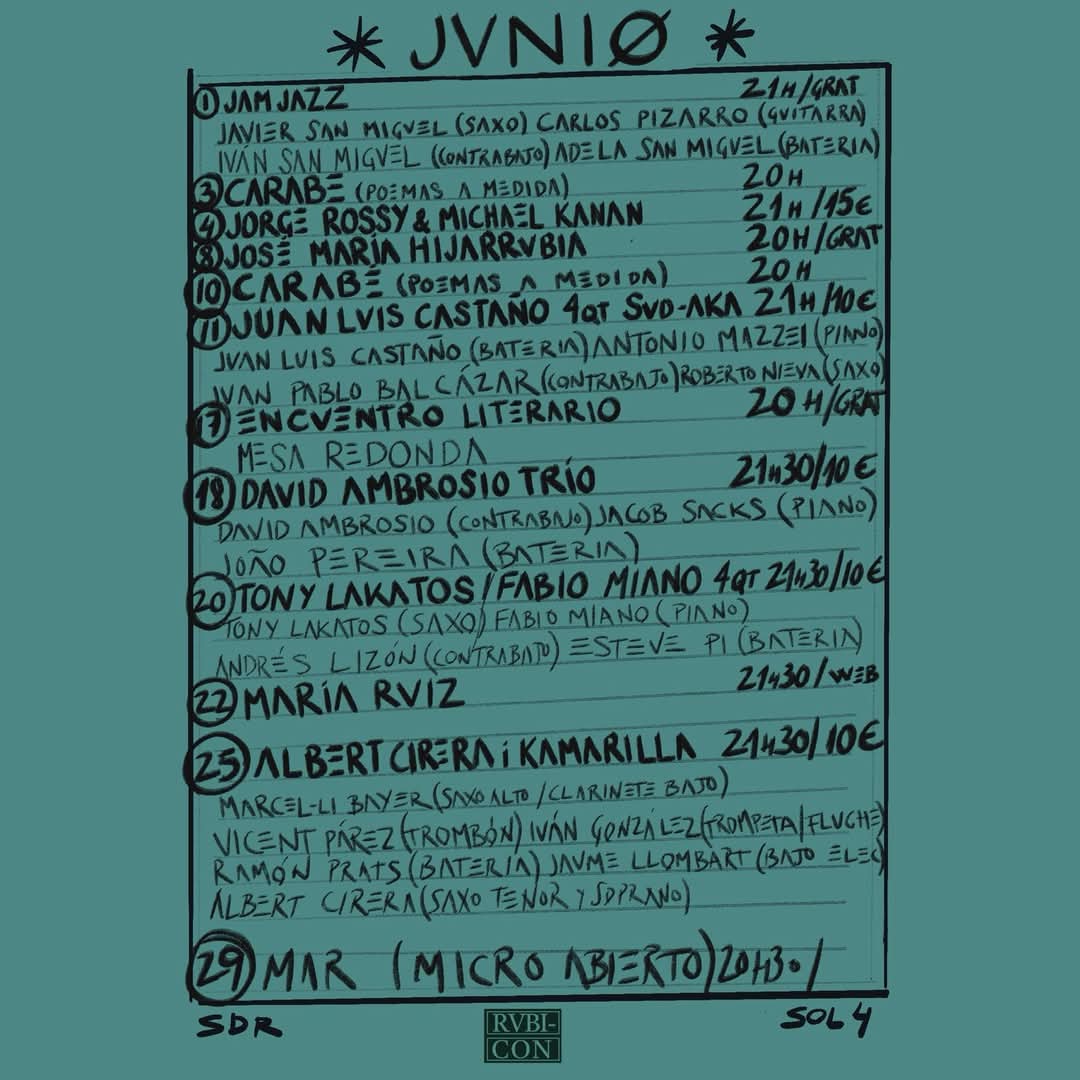 * JVNIØ *
1 JAM JAZZ 21H/GRAT
JAVIER SAN MIGVEL (SAXO) CARLOS PIZARRO (GVITARRA)
IVÁN SAN MIGVEL (CONTRABAJO) ADELA SAN MIGVEL (BATERIA)
3 CARABE (POEMAS A MEDIDA) 20H
4 JORGE ROSSY & MICHAEL KANAN 21H/15€
8 JOSÉ MARÍA HIJARRVBIA 20H/GRAT
10 CARABÉ (POEMAS A MEDIDA) 20H
11 JUAN LVIS CASTAÑO 4QT SVD-AKA 21H/10€
JVAN LUIS CASTAÑO (BATERIA) ANTONIO MAZZEI (PIANO)
JVAN PABLO BALCÁZAR (CONTRABAJO) ROBERTO NIEVA (SAXO)
17 ENCVENTRO LITERARIO 20H/GRAT
MESA REDONDA
18 DAVID AMBROSIO TRÍO 21H30/10€
DAVID AMBROSIO (CONTRABAJO) JACOB SACKS (PIANO)
JOÃO PEREIRA (BATERIA)
20 TONY LAKATOS/FABIO MIANO 4QT 21H30/10€
TONY LAKATOS (SAXO) FABIO MIANO (PIANO)
ANDRÉS LIZÓN (CONTRABAJO) ESTEVE PI (BATERIA)
22 MARÍA RVIZ 21H30/WEB
25 ALBERT CIRERA i KAMARILLA 21H30/10€
MARCEL-LI BAYER (SAXO ALTO/CLARINETE BAJO)
VICENT PÁREZ (TROMBÓN) IVÁN GONZÁLEZ (TROMPETA/FLVGHE)
RAMÓN PRATS (BATERÍA) JAVME LLOMBART (BAJO ELEC)
ALBERT CIRERA (SAXO TENOR Y SOPRANO)
29 MAR (MICRO ABIERTO) 20H30/
SDR
SOL 4
RVBI-
CON